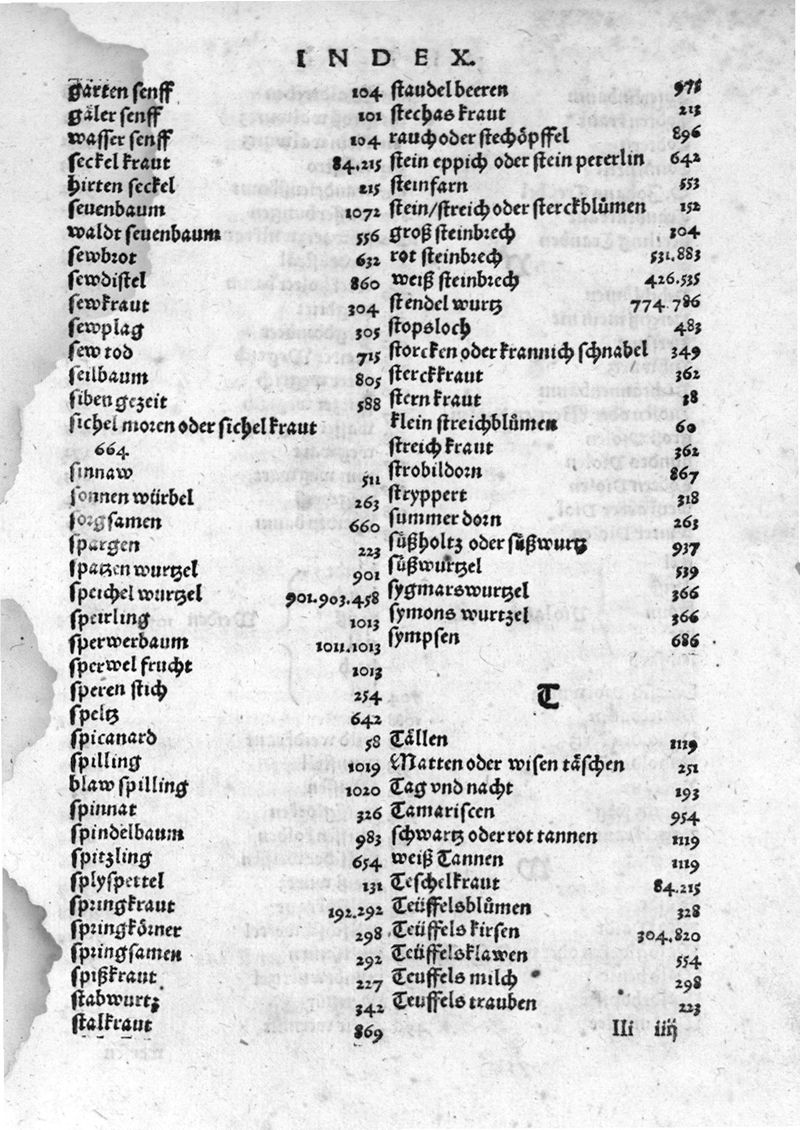 INDEX.
gärten senff 104
gäler senff 101
wasser senff 104
seckel kraut 84.215
hirten seckel 215
seuenbaum 1072
waldt seuenbaum 556
sewbrot 632
sewdistel 860
sewkraut 304
sewplag 305
sew tod 715
seilbaum 805
siben gezeit 588
sichel moren oder sichel kraut
664
sinnaw 511
sonnen würbel 263
sorgsamen 660
spargen 223
spatzen wurtzel 901
speichel wurtzel 901.903.458
speirling 1013
sperwerbaum 1011.1013
sperwel frucht 1013
speren stich 254
speltz 642
spicanard 58
spilling 1019
blaw spilling 1020
spinnat 326
spindelbaum 983
spitzling 654
splyspettel 131
springkraut 192.292
springkörner 298
springsamen 292
spißkraut 227
stabwurtz 342
stalkraut 869
staudel beeren 975
stechas kraut 213
rauch oder stechöpffel 896
stein eppich oder stein peterlin 642
steinfarn 553
stein/streich oder sterckblůmen 152
groß steinbrech 304
rot steinbrech 531.883
weiß steinbrech 426.535
stendel wurtz 774.786
stopsloch 483
storcken oder krannich schnabel 349
sterckkraut 362
stern kraut 38
klein streichblůmen 60
streich kraut 362
strobildorn 867
stryppert 318
summer dorn 263
süßholtz oder süßwurtz 937
süßwurtzel 539
sygmarswurtzel 366
symons wurtzel 366
sympsen 686
T
Tällen 1119
Matten oder wisen täschen 251
Tag vnd nacht 193
Tamariscen 954
schwartz oder rot tannen 1119
weiß Tannen 1119
Teschelkraut 84.215
Teüffelsblůmen 328
Teüffels kirsen 304.820
Teüffelsklawen 554
Teuffels milch 298
Teuffels trauben 223
IIi iiij